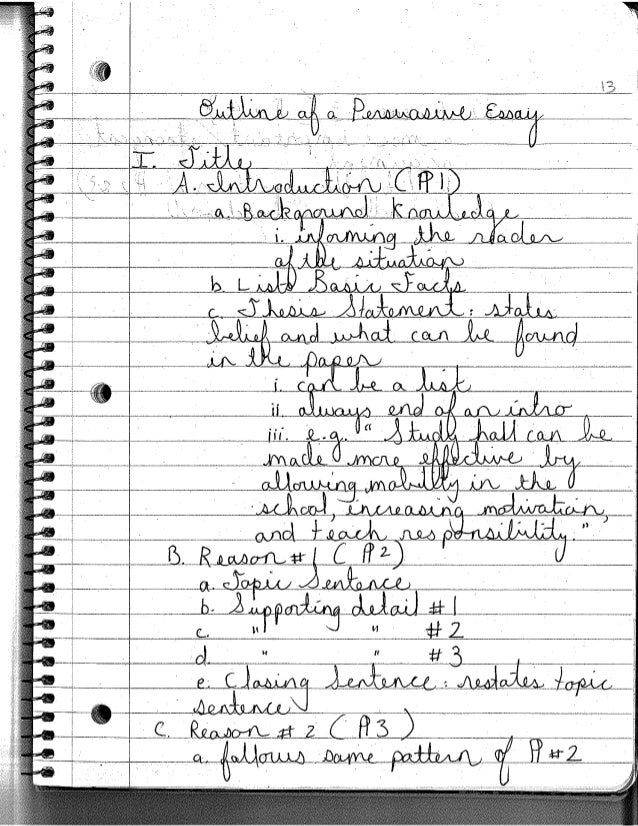 13
Outline of a Persuasive Essay
I. Title
A. Introduction (¶1)
a. Background Knowledge
i. informing the reader
of the situation
b. Lists Basic Facts
c. Thesis Statement: states
belief and what can be found
in the paper
i. can be a list
ii. always end of an intro
iii. e.g. "Study hall can be
made more effective by
allowing mobility in the
school, increasing motivation,
and teach responsibility."
B. Reason #1 (¶2)
a. Topic Sentence
b. Supporting detail #1
c. " " #2
d. " " #3
e. Closing Sentence: restates topic
sentence
C. Reason #2 (¶3)
a. follows same pattern of ¶#2